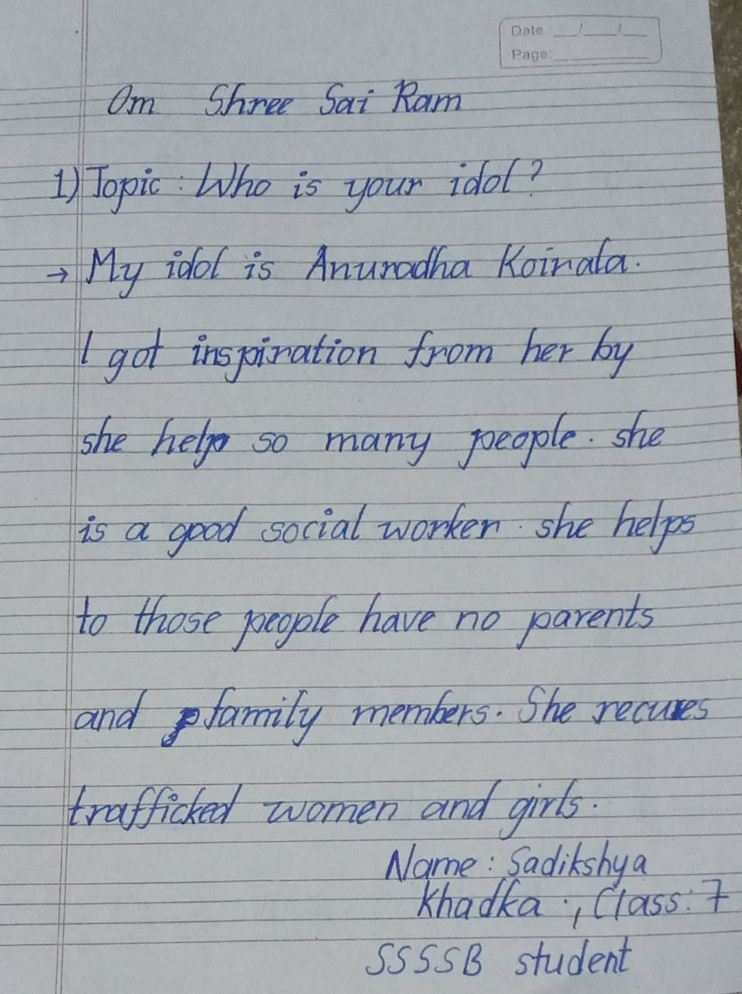 Date __/__/__
Page:
Om Shree Sai Ram
1) Topic : Who is your idol?
→ My idol is Anuradha Koirala.
I got inspiration from her by
she help so many people. she
is a good social worker. she helps
to those people have no parents
and family members. She recures
trafficked women and girls.
Name : Sadikshya
Khadka ., Class: 7
SSSSB student